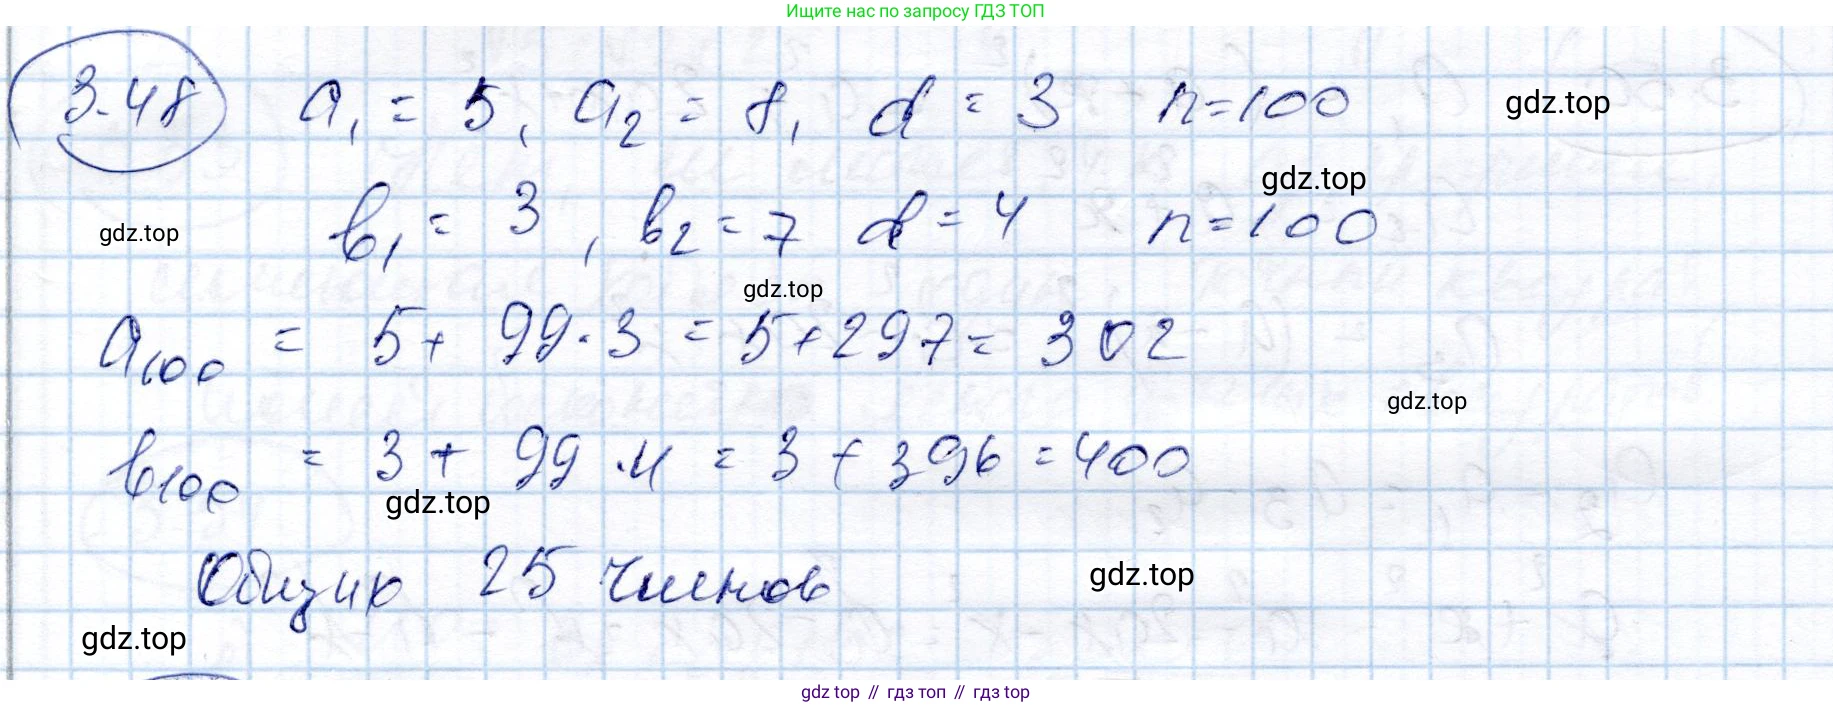 Ищите нас по запросу ГДЗ ТОП
3.48 a₁ = 5, a₂ = 8, d = 3 n=100 gdz.top
gdz.top
gdz.top b₁ = 3, b₂ = 7 d = 4 n=100
gdz.top
a₁₀₀ = 5 + 99·3 = 5+297 = 302
gdz.top
b₁₀₀ = 3 + 99·4 = 3 + 396 = 400
gdz.top
Общих 25 членов gdz.top
gdz.top
gdz top // гдз топ // гдз top